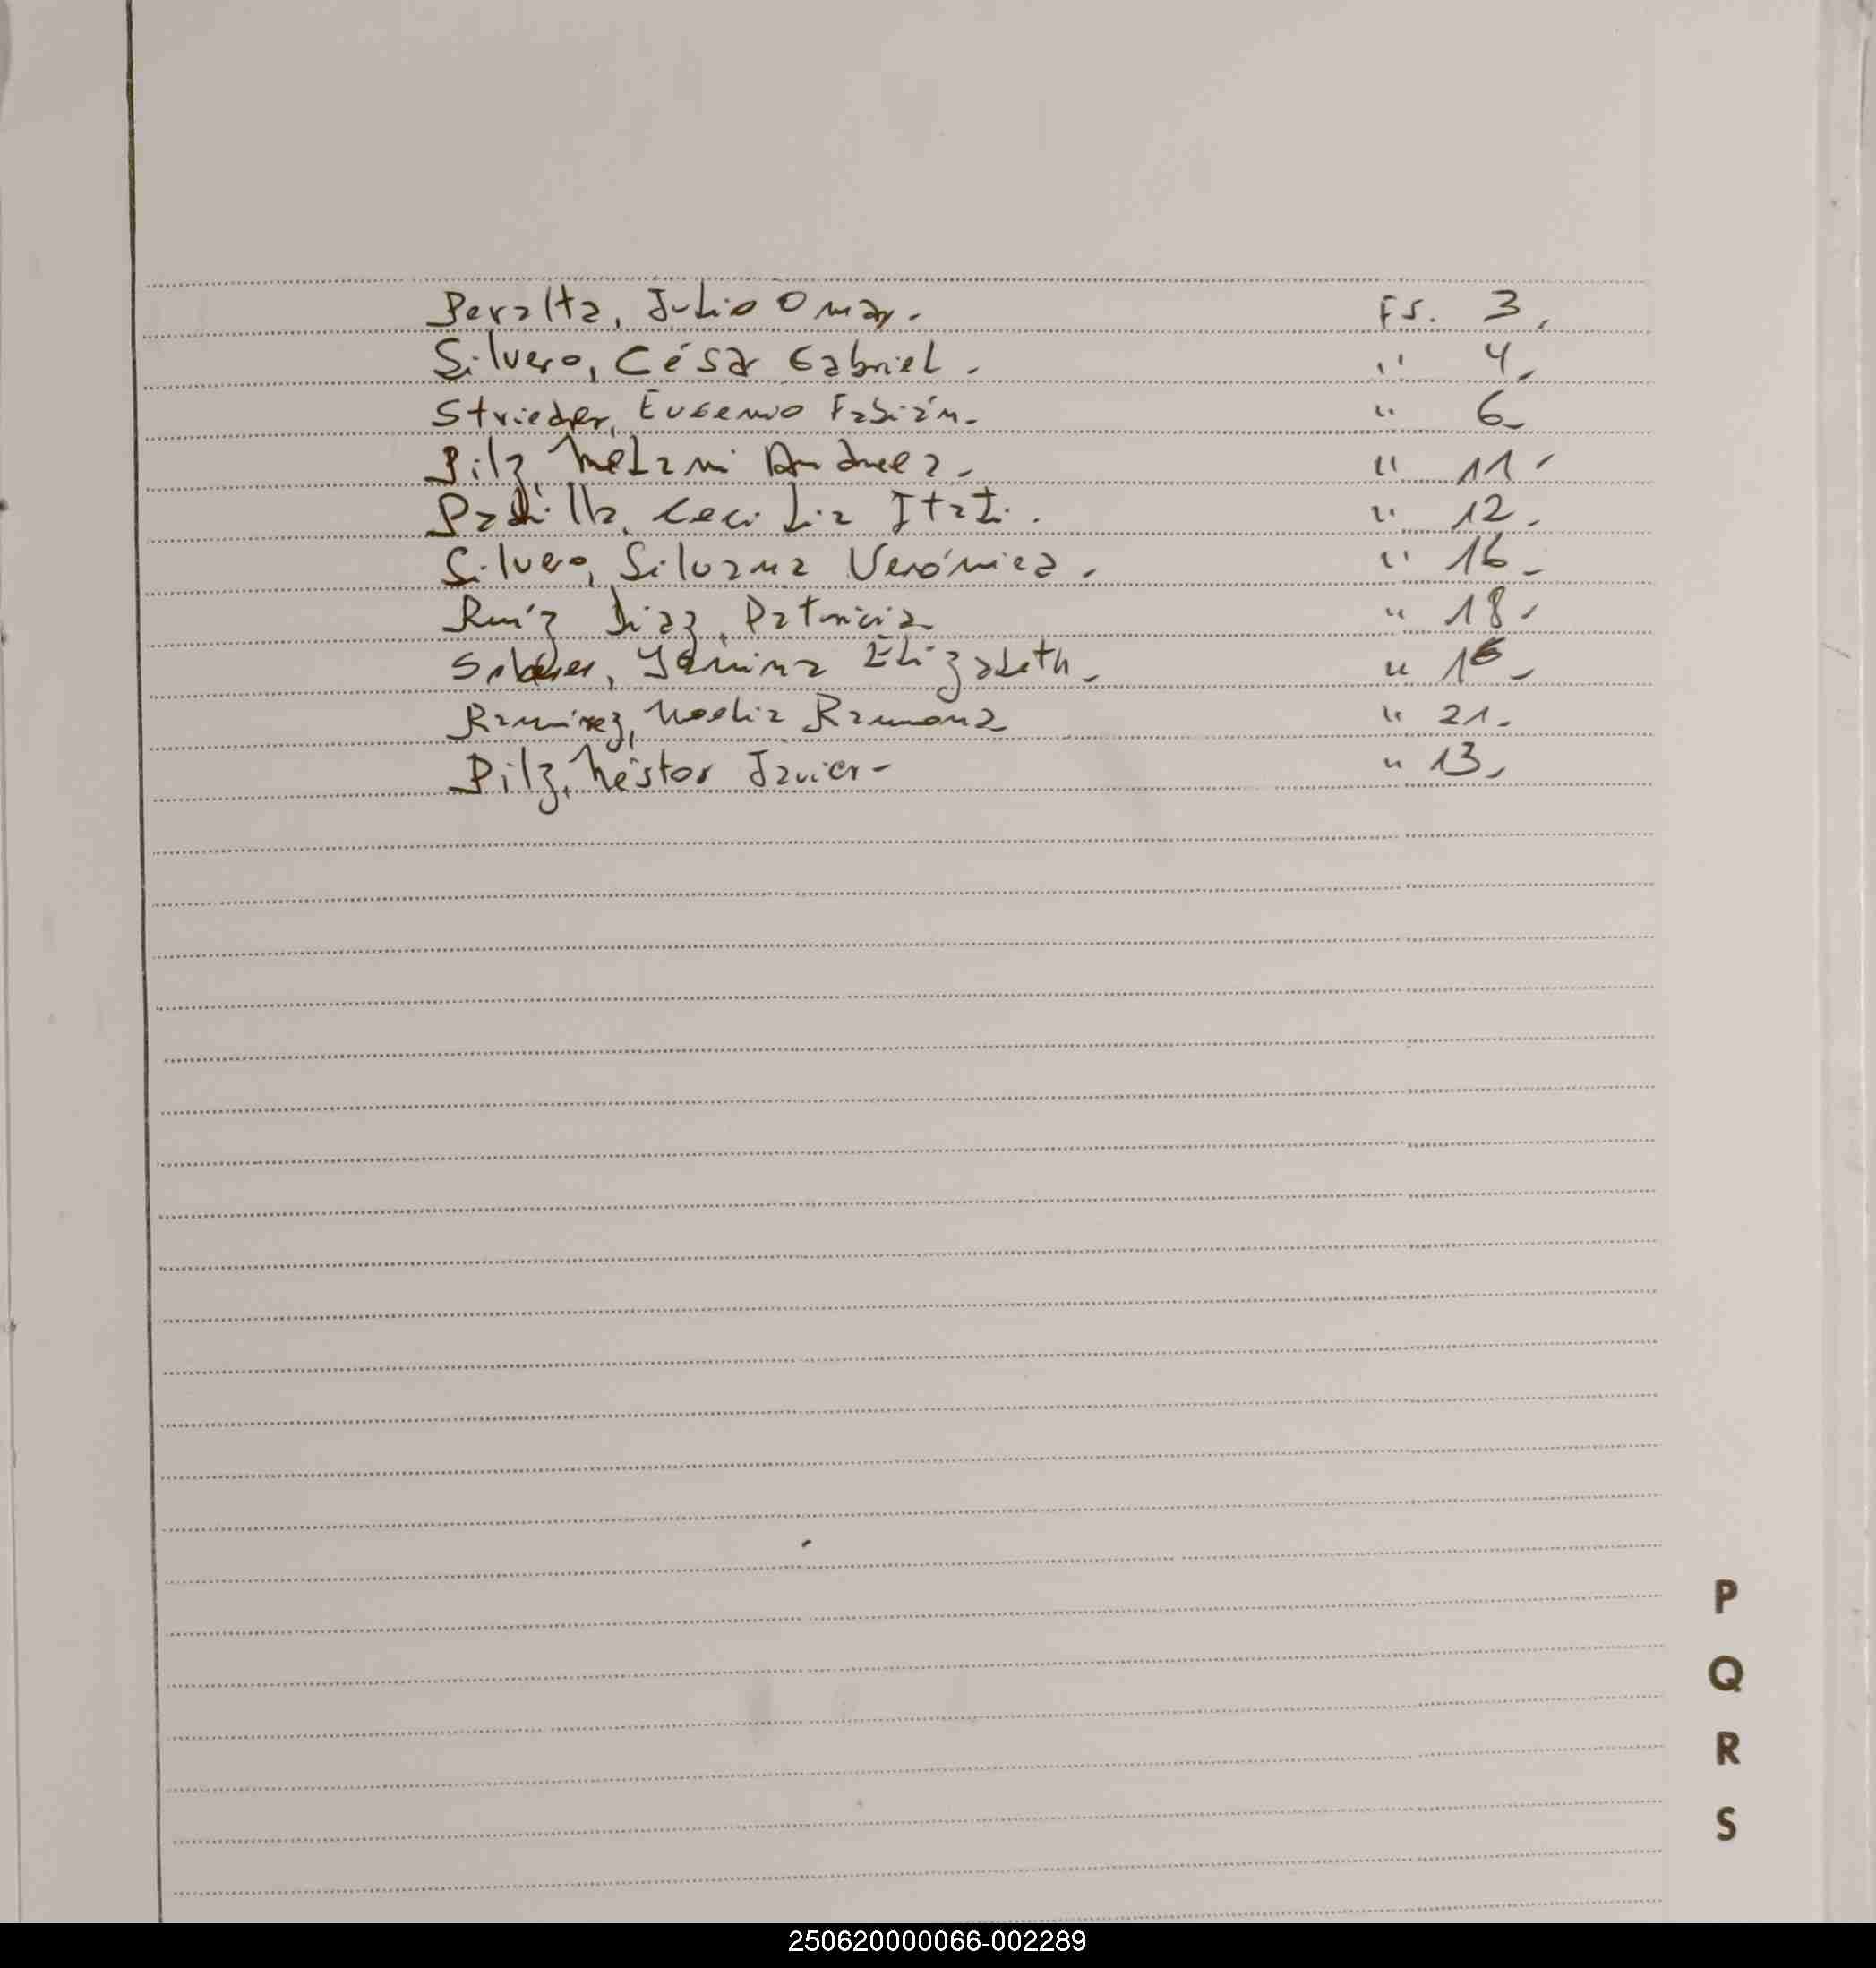 Peralta, Julio Omar. Fs. 3.
Silvero, César Gabriel. " 4.
Strieder, Eugenio Fabián. " 6.
Pilz, Melani Andrea. " 11.
Padilla, Cecilia Itatí. " 12.
Silvero, Silvana Verónica. " 16.
Ruíz Díaz, Patricia " 18.
Yanina Elizabeth. "
Ramírez, Noelia Ramona " 21.
Pilz, Néstor Javier. " 13.
P
Q
R
S
250620000066-002289